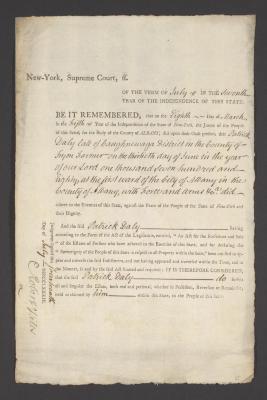 New-York, Supreme Court, ss.
OF THE TERM OF July IN THE Seventh
YEAR OF THE INDEPENDENCE OF THIS STATE.
BE IT REMEMBERED, that on the Eighth Day of March
in the fifth Year of the Independence of the State of New-York, the Jurors of the People
of this State, for the Body of the County of ALBANY, did upon their Oath present, that Patrick
Daly late of Caughnawaga District in the County of
Tryon Farmer on the thirtieth day of June in the year of
our Lord one thousand seven hundred and
eighty at the first ward of the City of Albany in the
County of Albany, with Force and arms &c. did
adhere to the Enemies of this State, against the Peace of the People of the State of New-York and
their Dignity.
And the said Patrick Daly having
according to the Form of the Act of the Legislature, entitled, "An Act for the Forfeiture and Sale
"of the Estates of Persons who have adhered to the Enemies of this State, and for declaring the
"Sovereignty of the People of this State in respect to all Property within the same,"
and not having appeared and traversed within the Time, and in
the Manner, is and by the said Act limited and required; IT IS THEREFORE CONSIDERED,
that the said Patrick Daly do forfeit
all and singular the Estate, both real and personal, whether in Possession, Reversion or Remainder,
held or claimed by him within this State, to the People of this State.
Judgment signed this
Day of July